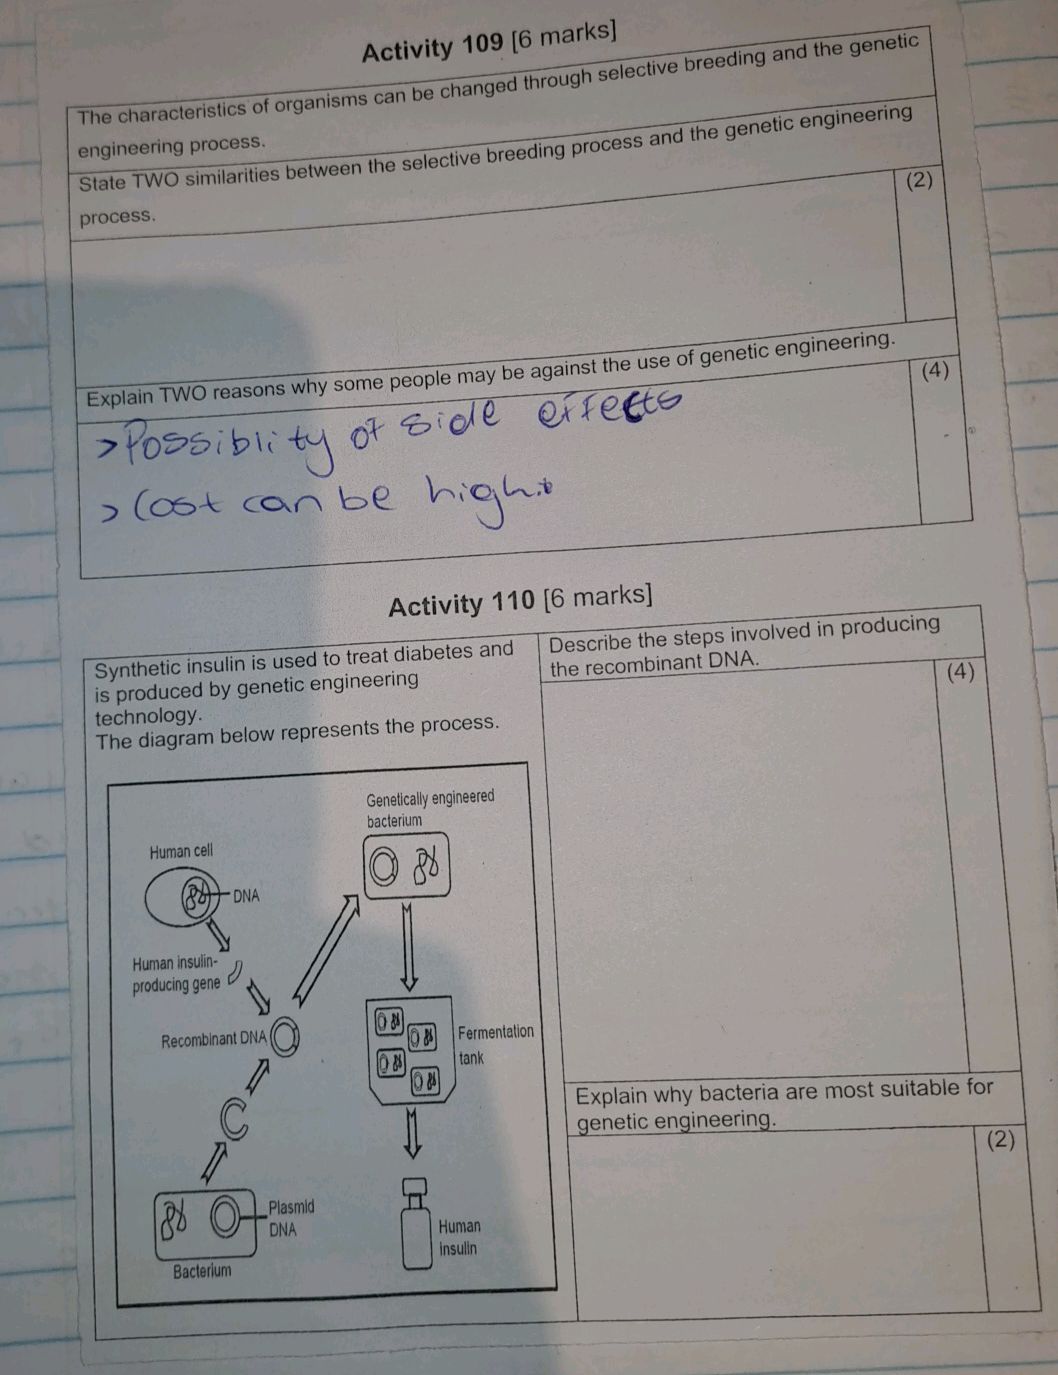 Activity 109 [6 marks]
The characteristics of organisms can be changed through selective breeding and the genetic
engineering process.
State TWO similarities between the selective breeding process and the genetic engineering
process.
(2)
Explain TWO reasons why some people may be against the use of genetic engineering.
(4)
>Possiblity of side effects
> Cost can be high.
Activity 110 [6 marks]
Synthetic insulin is used to treat diabetes and
is produced by genetic engineering
technology.
The diagram below represents the process.
Human cell
DNA
Human insulin-
producing gene
Recombinant DNA
Plasmid
DNA
Bacterium
Genetically engineered
bacterium
Fermentation
tank
Human
insulin
Describe the steps involved in producing
the recombinant DNA.
(4)
Explain why bacteria are most suitable for
genetic engineering.
(2)